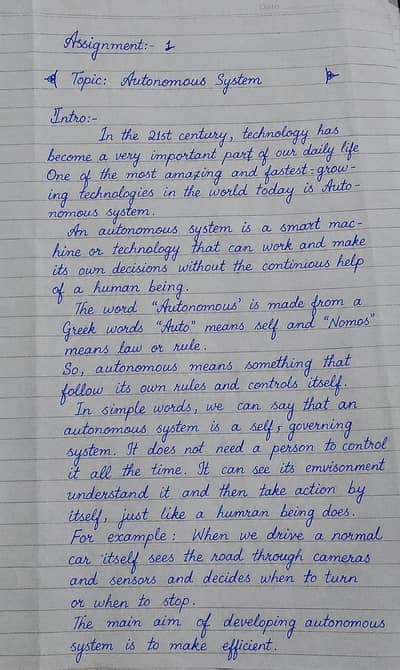 Assignment:- 1
Topic: Autonomous System
Intro:-
In the 21st century, technology has
become a very important part of our daily life
One of the most amazing and fastest-grow-
ing technologies in the world today is Auto-
nomous system.
An autonomous system is a smart mac-
hine or technology that can work and make
its own decisions without the continuous help
of a human being.
The word "Autonomous' is made from a
Greek words "Auto" means self and "Nomos"
means law or rule.
So, autonomous means something that
follow its own rules and controls itself.
In simple words, we can say that an
autonomous system is a self, governing
system. It does not need a person to control
it all the time. It can see its envisonment
understand it and then take action by
itself, just like a humran being does.
For example: When we drive a normal
car itself sees the road through cameras
and sensors and decides when to turn
or when to stop.
The main aim of developing autonomous
system is to make efficient.